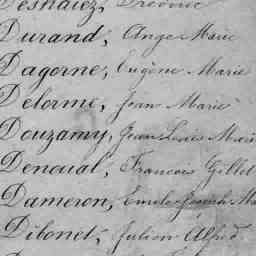 Durand, Ange Marie
Dagorne, Eugène Marie
Delorme, Jean Marie
Douzamy, Jean Louis Mari
Denoual, Francois Gillet
Dameron, Emile Joseph Ma
Dibonet, Julien Alfred